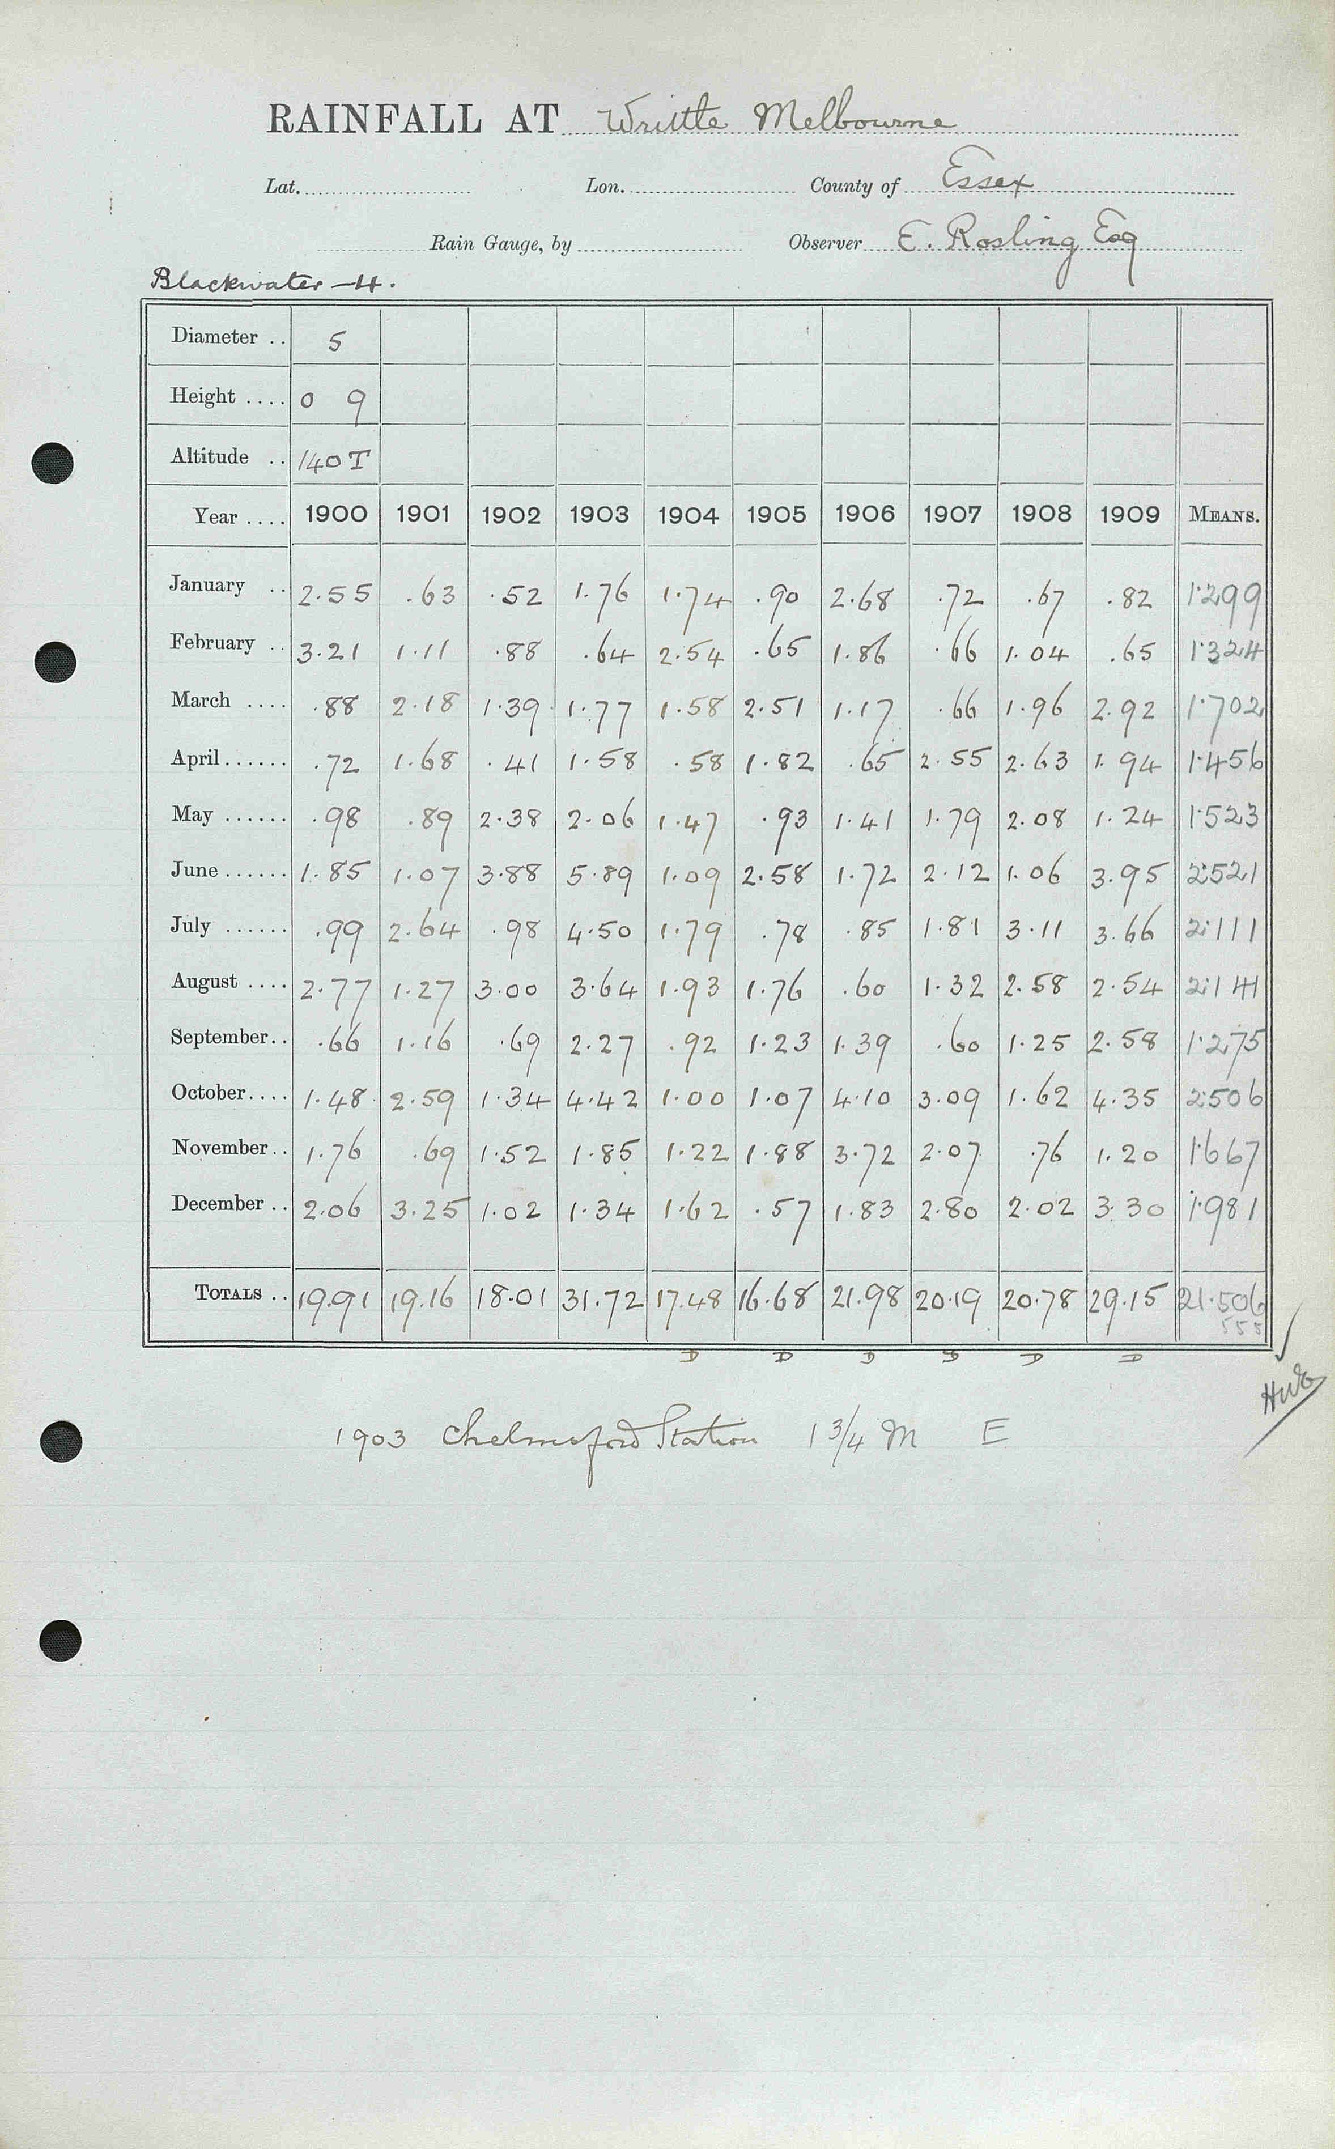 RAINFALL AT Writtle Melbourne
Lat. Lon. County of Essex
Rain Gauge, by Observer E. Rosling Esq
Blackwater -4.
Diameter .. 5
Height .... 0 9
Altitude .. 140 T
Year .... 1900 1901 1902 1903 1904 1905 1906 1907 1908 1909 MEANS.
January .. 2.55 .63 .52 1.76 1.74 .90 2.68 .72 .67 .82 1.299
February .. 3.21 1.11 .88 .64 2.54 .65 1.86 .66 1.04 .65 1.324
March .... .88 2.18 1.39 1.77 1.58 2.51 1.17 .66 1.96 2.92 1.702
April...... .72 1.68 .41 1.58 .58 1.82 .65 2.55 2.63 1.94 1.456
May ...... .98 .89 2.38 2.06 1.47 .93 1.41 1.79 2.08 1.24 1.523
June...... 1.85 1.07 3.88 5.89 1.09 2.58 1.72 2.12 1.06 3.95 2.521
July ...... .99 2.64 .98 4.50 1.79 .78 .85 1.81 3.11 3.66 2.111
August .... 2.77 1.27 3.00 3.64 1.93 1.76 .60 1.32 2.58 2.54 2.141
September.. .66 1.16 .69 2.27 .92 1.23 1.39 .60 1.25 2.58 1.275
October.... 1.48 2.59 1.34 4.42 1.00 1.07 4.10 3.09 1.62 4.35 2.506
November.. 1.76 .69 1.52 1.85 1.22 1.88 3.72 2.07 .76 1.20 1.667
December .. 2.06 3.25 1.02 1.34 1.62 .57 1.83 2.80 2.02 3.30 1.981
TOTALS .. 19.91 19.16 18.01 31.72 17.48 16.68 21.98 20.19 20.78 29.15 21.506
555
D D D D D D
1903 Chelmsford Station 1 3/4 M E